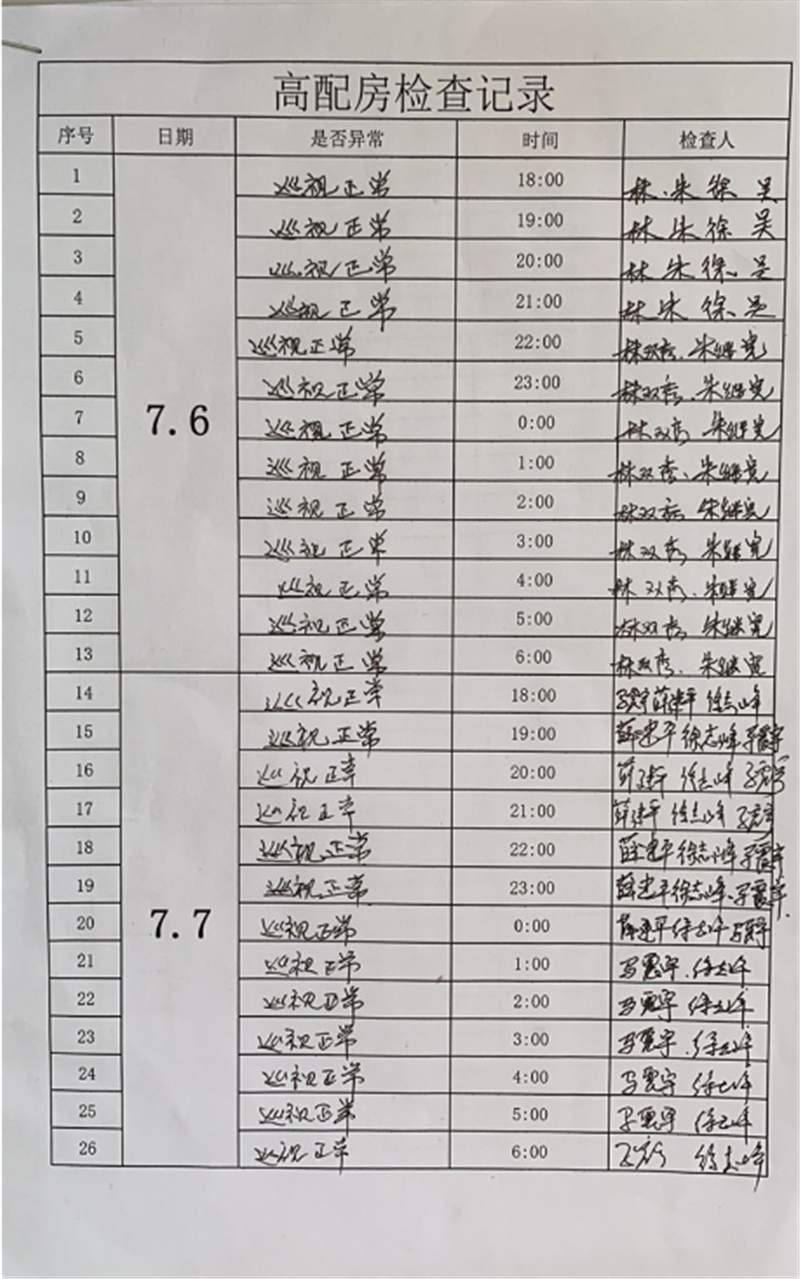 高配房检查记录
序号 日期 是否异常 时间 检查人
1 巡视正常 18:00 林、朱 徐 吴
2 巡视正常 19:00 林 朱 徐 吴
3 巡视正常 20:00 林 朱 徐、吴
4 巡视正常 21:00 林 朱 徐、吴
5 巡视正常 22:00 林双秀、朱继宽
6 巡视正常 23:00 林双秀、朱继宽
7 7.6 巡视正常 0:00 林双秀 朱继宽
8 巡视正常 1:00 林双秀、朱继宽
9 巡视正常 2:00 林双秀 朱继宽
10 巡视正常 3:00 林双秀、朱继宽
11 巡视正常 4:00 林双秀、朱继宽
12 巡视正常 5:00 林双秀、朱继宽
13 巡视正常 6:00 林双秀、朱继宽
14 巡视正常 18:00 薛建平 徐志峰
15 巡视正常 19:00 薛建平 徐志峰 马震宇
16 巡视正常 20:00 薛建平 徐志峰 马震宇
17 巡视正常 21:00 薛建平 徐志峰 马震宇
18 巡视正常 22:00 薛建平 徐志峰 马震宇
19 巡视正常 23:00 薛建平 徐志峰、马震宇
20 7.7 巡视正常 0:00 薛建平 徐志峰 马震宇
21 巡视正常 1:00 马震宇、徐志峰
22 巡视正常 2:00 马震宇、徐志峰
23 巡视正常 3:00 马震宇、徐志峰
24 巡视正常 4:00 马震宇、徐志峰
25 巡视正常 5:00 马震宇 徐志峰
26 巡视正常 6:00 徐志峰